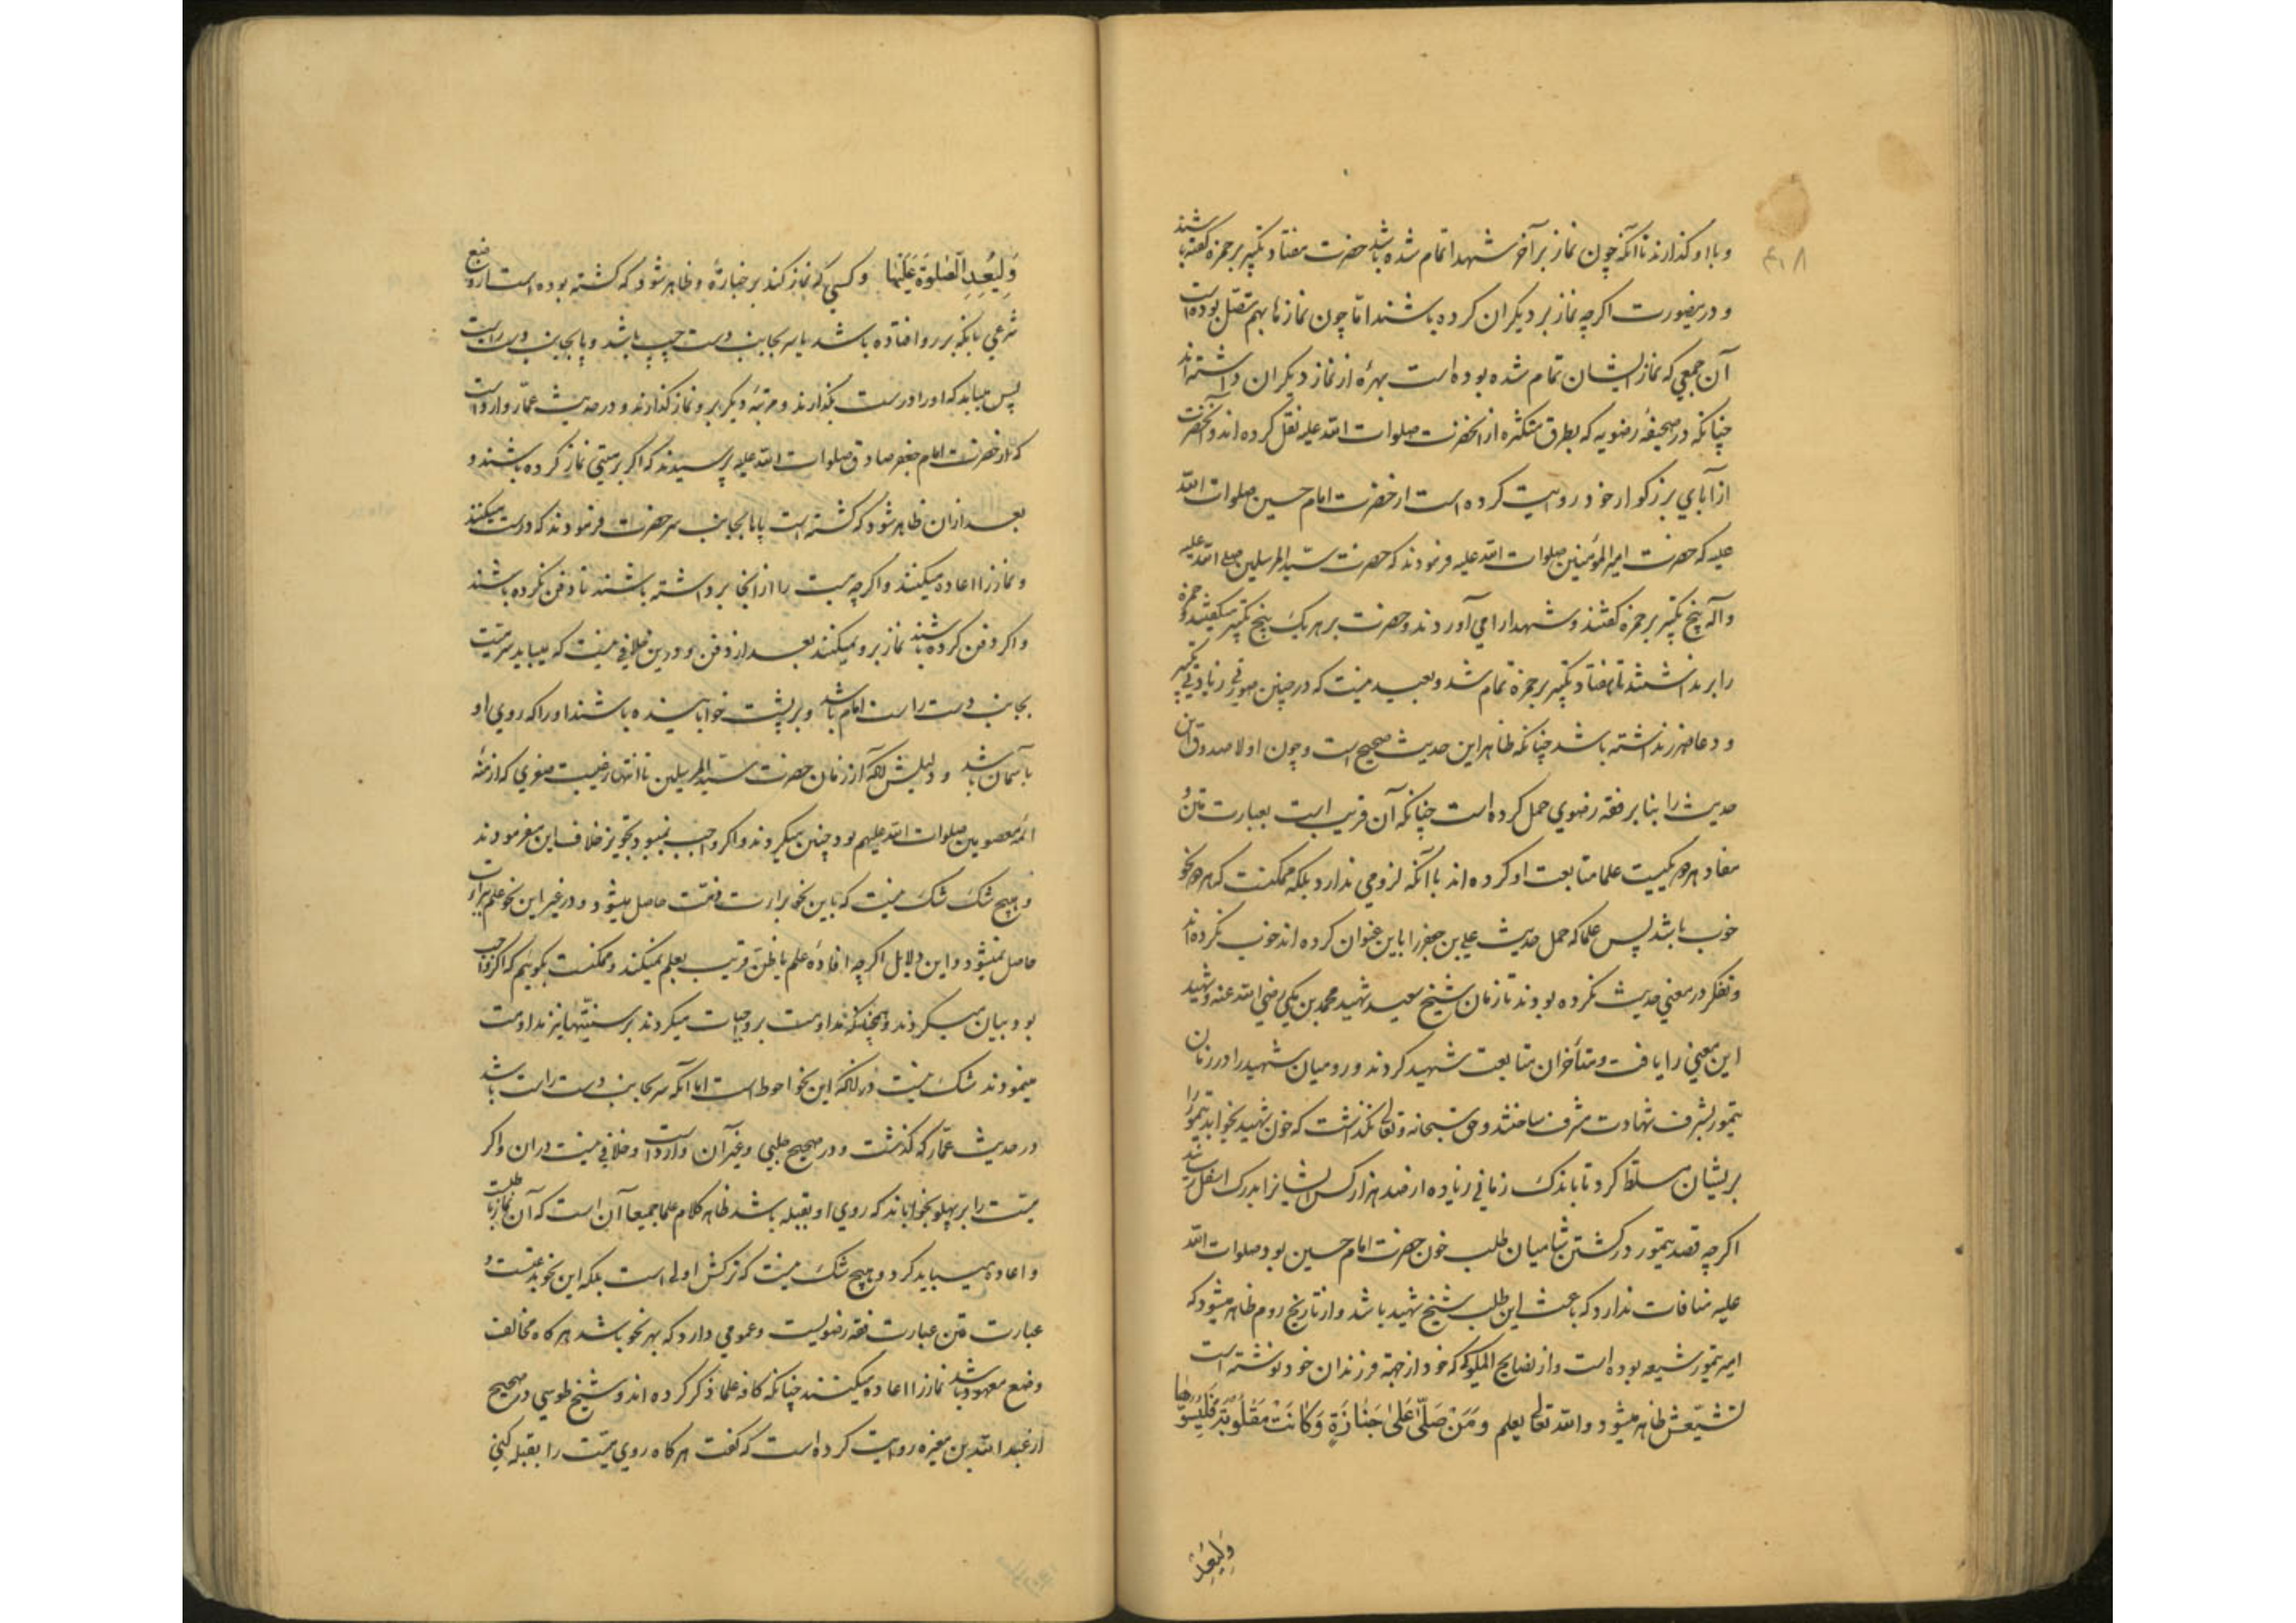 ۴۰۸
و با او گذارند تا آنکه چون نماز بر آخر شهدا تمام شده باشد حضرت هفتاد تکبیر بر حمزه گفته باشند
و درینصورت اگرچه نماز بر دیگران کرده باشند اما چون نمازها بهم متصل بوده است
آن جمعی که نماز ایشان تمام شده بوده است بهرهٔ از نماز دیگران داشته اند
چنانکه در صحیفهٔ رضویه که بطرق متکثره از انحضرت صلوات الله علیه نقل کرده اند و آنحضرت
از آبای بزرگوار خود روایت کرده است از حضرت امام حسین صلوات الله
علیه که حضرت امیر المؤمنین صلوات الله علیه فرمودند که حضرت سید المرسلین صلی الله علیه
و آله پنج تکبیر بر حمزه گفتند و شهدا را می آوردند و حضرت بر هر یک پنج تکبیر میگفتند و حمزه
را بر نداشتند تا هفتاد تکبیر بر حمزه تمام شد و بعید نیست که در چنین موقع زیادتی تکبیر
و دعا ضرر نداشته باشد چنانکه ظاهر این حدیث صحیح است و چون اولا صدوق این
حدیث را بنا بر فقه رضوی حمل کرده است چنانکه آن قریب است بعبارت متن و
مفاد هر دو یکیست علما متابعت او کرده اند با آنکه لزومی ندارد بلکه ممکنست که هر دو نحو
خوب باشد پس علما که حمل حدیث علی بن جعفر را باین عنوان کرده اند خوب نکرده اند
و تفکر در معنی حدیث نکرده بودند تا زمان شیخ سعید شهید محمد بن مکی رضی الله عنه و شهید
این معنی را یافت و متأخران متابعت شهید کردند و رومیان شهید را در زمان
تیمور بشرف شهادت مشرف ساختند و حق سبحانه و تعالی نگذاشت که خون شهید بخوابد تیمور را
بریشان مسلط کرد تا باندک زمانی زیاده از صد هزار کس ایشانرا بدرک اسفل رسانید
اگرچه قصد تیمور در کشتن شامیان طلب خون حضرت امام حسین بود صلوات الله
علیه منافات ندارد که باعث این طلب شیخ شهید باشد و از تاریخ روم ظاهر میشود که
امیر تیمور شیعه بوده است و از نصایح الملوک که خود از جهة فرزندان خود نوشته است
تشیعش ظاهر میشود و الله تعالی یعلم وَمَنْ صَلّیٰ عَلیٰ جَنٰازَةٍ وَکٰانَتْ مَقْلُوبَةً فَلْیُسَوِّهٰا
وَلْیُعِدِ
وَلْیُعِدِ الصَّلوٰةَ عَلَیْهٰا و کسی که نماز کند بر جنازهٔ و ظاهر شود که گشته بوده است از وضع
شرعی بانکه بر رو افتاده باشد یا سر بجانب دست چپ باشد و پا بجانب دست راست
پس میباید که او را درست بگذارند و مرتبهٔ دیگر برو نماز گذارند و در حدیث عمار وارد است
که از حضرت امام جعفر صادق صلوات الله علیه پرسیدند که اگر بر میتی نماز کرده باشند و
بعد از ان ظاهر شود که گشته است پاها بجانب سر حضرت فرمودند که درست میکنند
و نماز را اعاده میکنند و اگرچه میت را از انجا برداشته باشند تا دفن نکرده باشند
و اگر دفن کرده باشند نماز برو نمیکنند بعد از دفن و درین خلافی نیست که میباید سر میت
بجانب دست راست امام باشد و بر پشت خوابانیده باشند او را که روی او
بآسمان باشد و دلیلش آنکه از زمان حضرت سید المرسلین تا انتهاء غیبت صغری که ازمنهٔ
ائمه معصومین صلوات الله علیهم بود چنین میکردند و اگر واجب نمیبود تجویز خلاف این میفرمودند
و هیچ شک شک نیست که باین نحو برائت ذمت حاصل میشود و در غیر این نحو علم ببرائت
حاصل نمیشود و این دلایل اگرچه افادهٔ علم یا ظن قریب بعلم نمیکند و ممکنست بگوئیم که اگر واجب
بود بیان میکردند و همچنانکه مداومت بر واجبات میکردند بر سنتیها نیز مداومت
مینمودند شک نیست در آنکه این نحو احوط است اما آنکه سر بجانب دست راست باشد
در حدیث عمار که گذشت و در صحیح حلبی و غیر آن وارد است و خلافی نیست در ان و اگر
میت را بر پهلو بخوابانند که روی او بقبله باشد ظاهر کلام علما جمیعا آن است که آن نماز باطلست
و اعاده میباید کرد و هیچ شک نیست که ترکش اولی است بلکه این نحو بدعتست و
عبارت متن عبارت فقه رضویست و عمومی دارد که بهر نحو باشد هر گاه مخالف
وضع معهود باشد نماز را اعاده میکنند چنانکه کافه علما ذکر کرده اند و شیخ طوسی در صحیح
از عبد الله بن مغیره روایت کرده است که گفت هر گاه روی میت را بقبله کنی